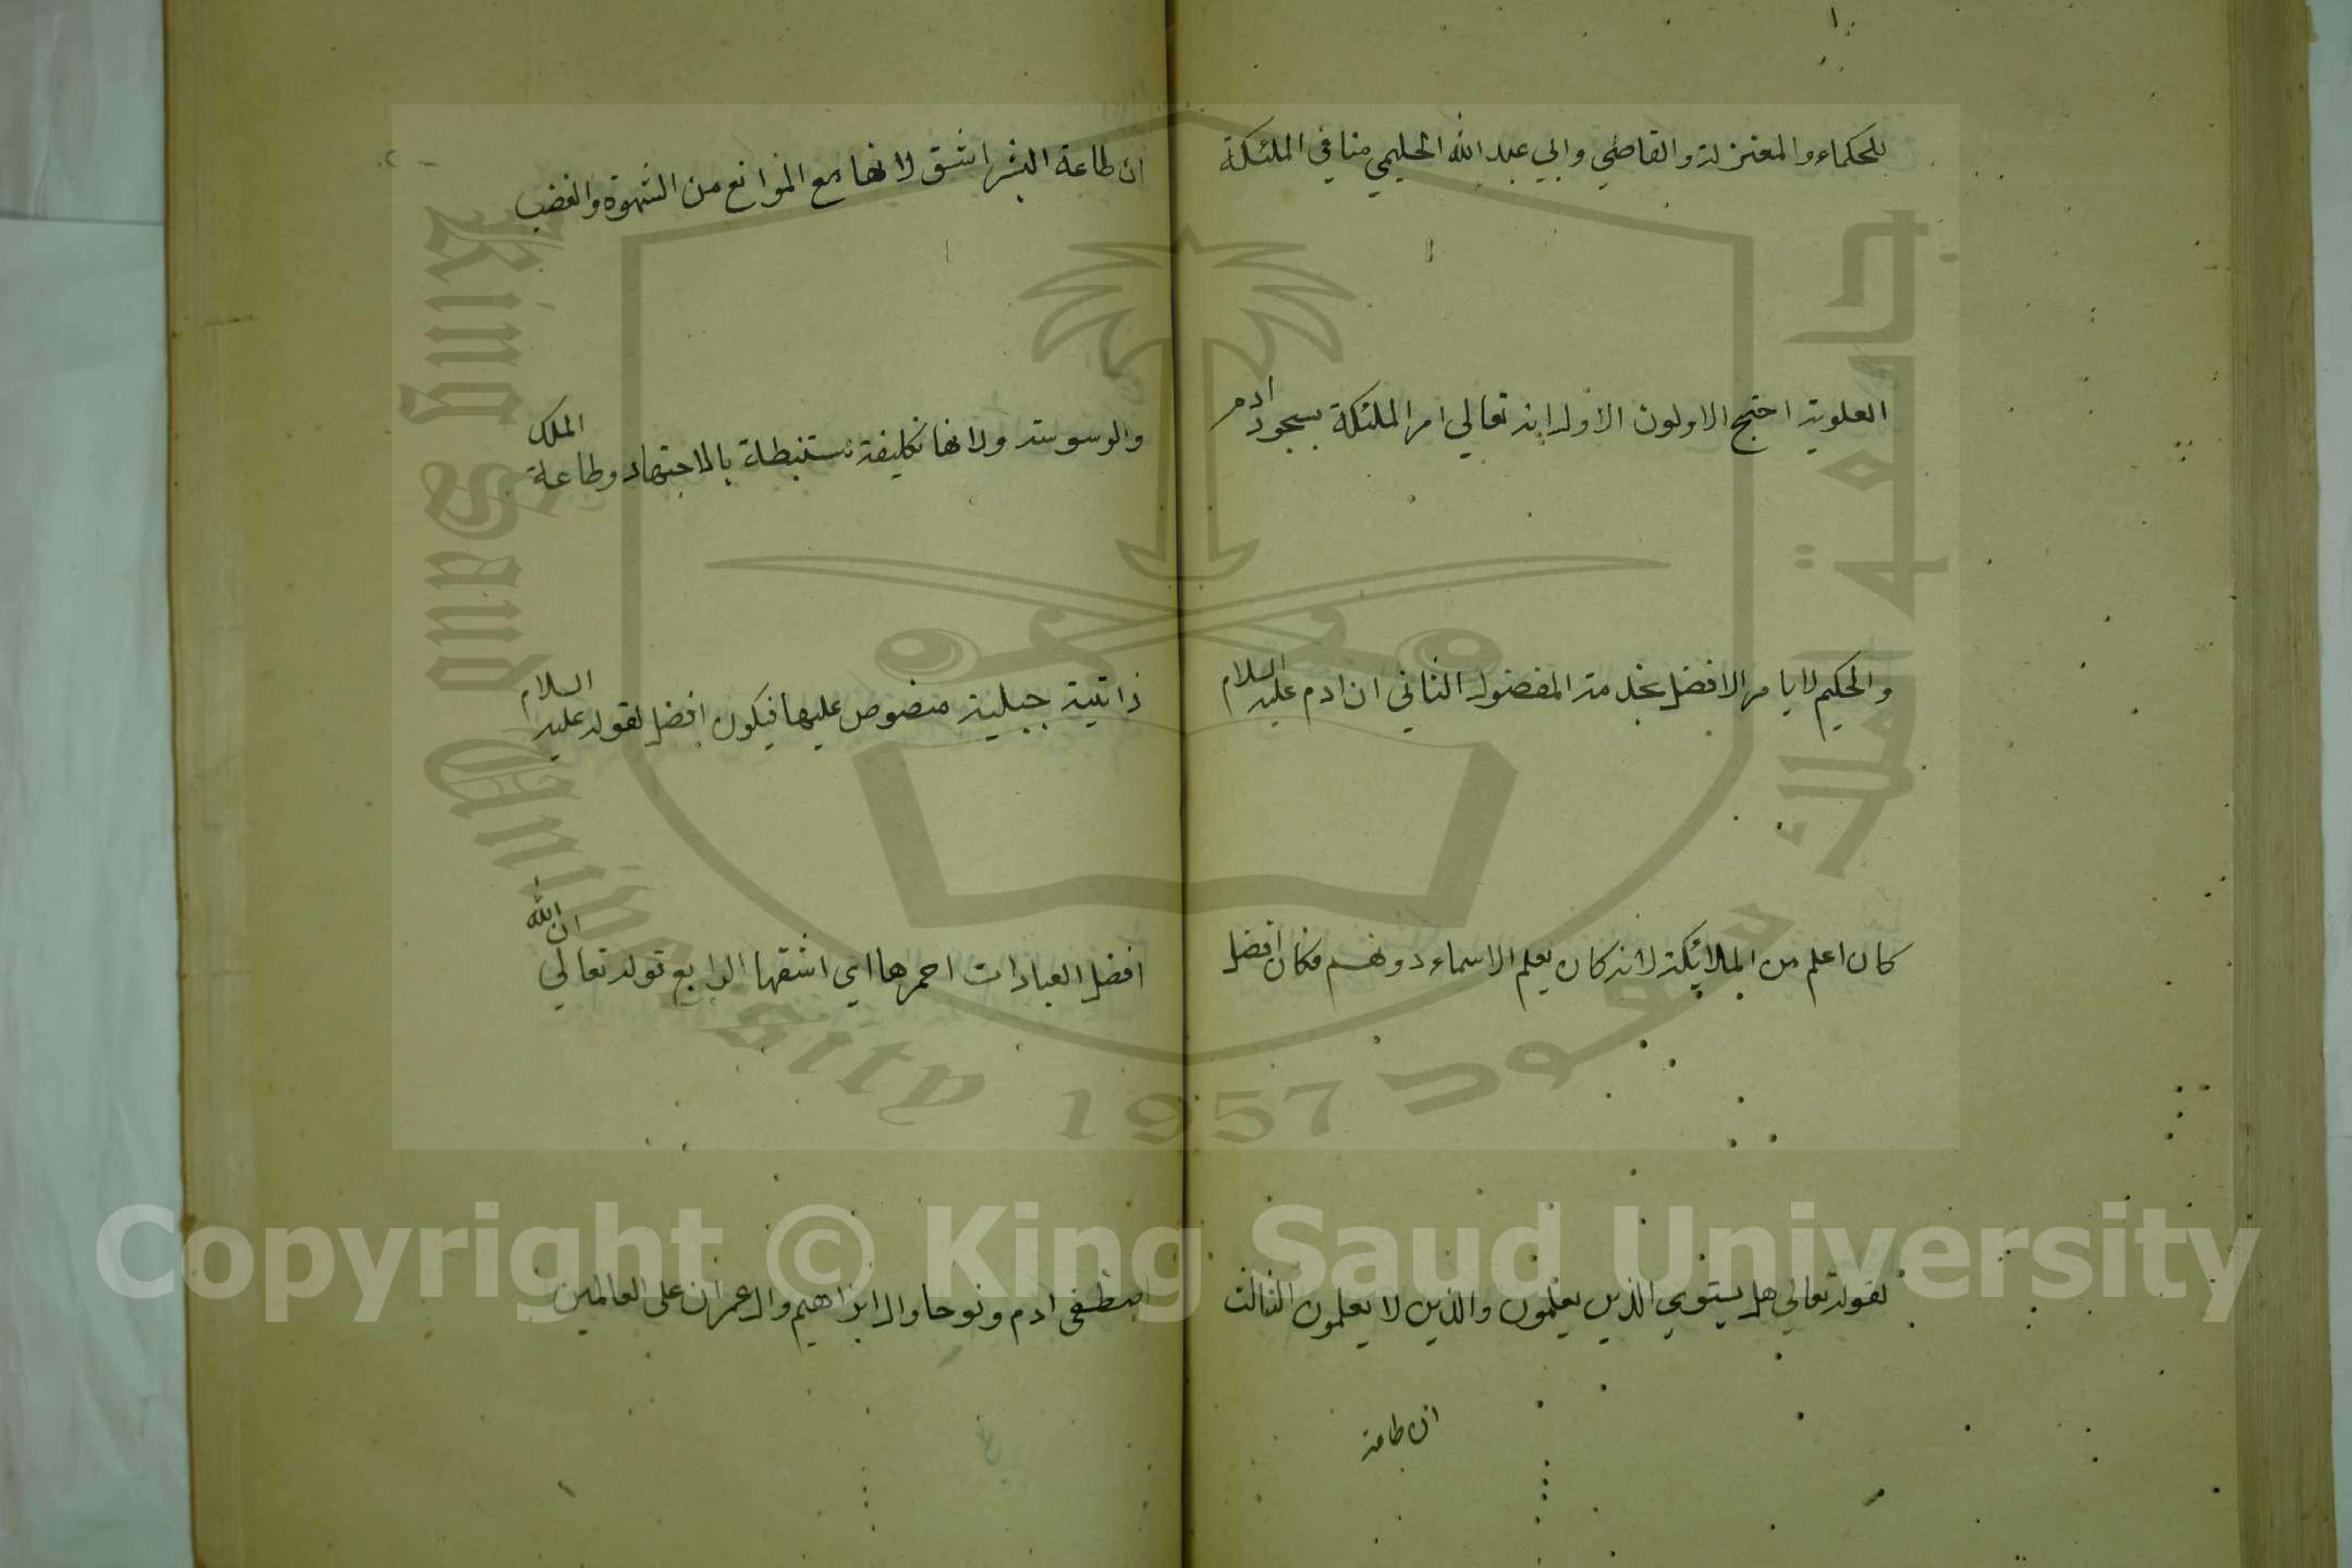 للحكماء والمعتزلة والقاضي وابي عبد الله الحليمي منا في الملئكة
العلوية احتج الاولون الاول انه تعالي امر الملئكة بسجود ادم
والحكيم لا يامر الافضل بخدمة المفضول الثاني ان ادم عليه السلام
كان اعلم من الملائكة لانه كان يعلم الاسماء دونهم فكان افضل
لقوله تعالي هل يستوي الذين يعلمون والذين لا يعلمون الثالث
ان طاعة
ان طاعة البشر اشق لانها مع الموانع من الشهوة والغضب
والوسوسة ولانها تكليفة تستنبطة بالاجتهاد وطاعة الملك
ذاتية جبلية منصوص عليها فيكون افضل لقوله عليه السلام
افضل العبادات احمزها اي اشقها الرابع قوله تعالي ان الله
اصطفى ادم ونوحا وال ابراهيم وال عمران على العالمين
جامعة الملك سعود
King Saud University 1957
Copyright © King Saud University